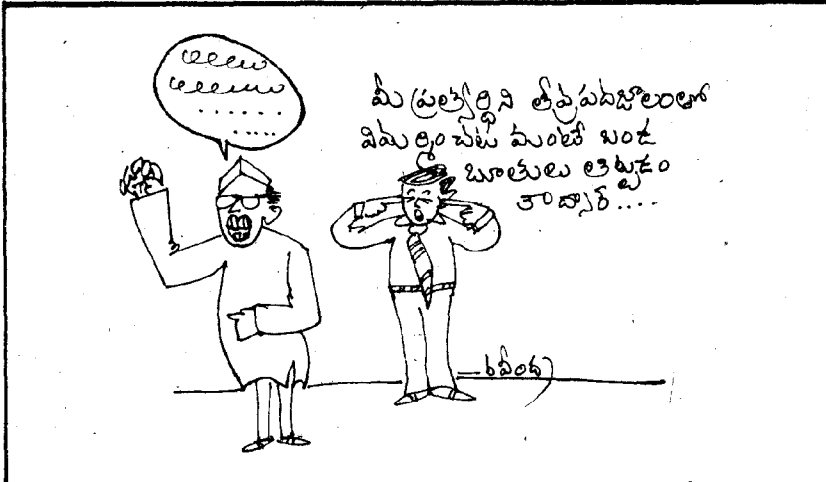 మీ ప్రత్యర్థిని తీవ్రపదజాలంతో
విమర్శించటమంటే బండ
బూతులు తిట్టడం
కాద్సార్....
- రవీంద్ర